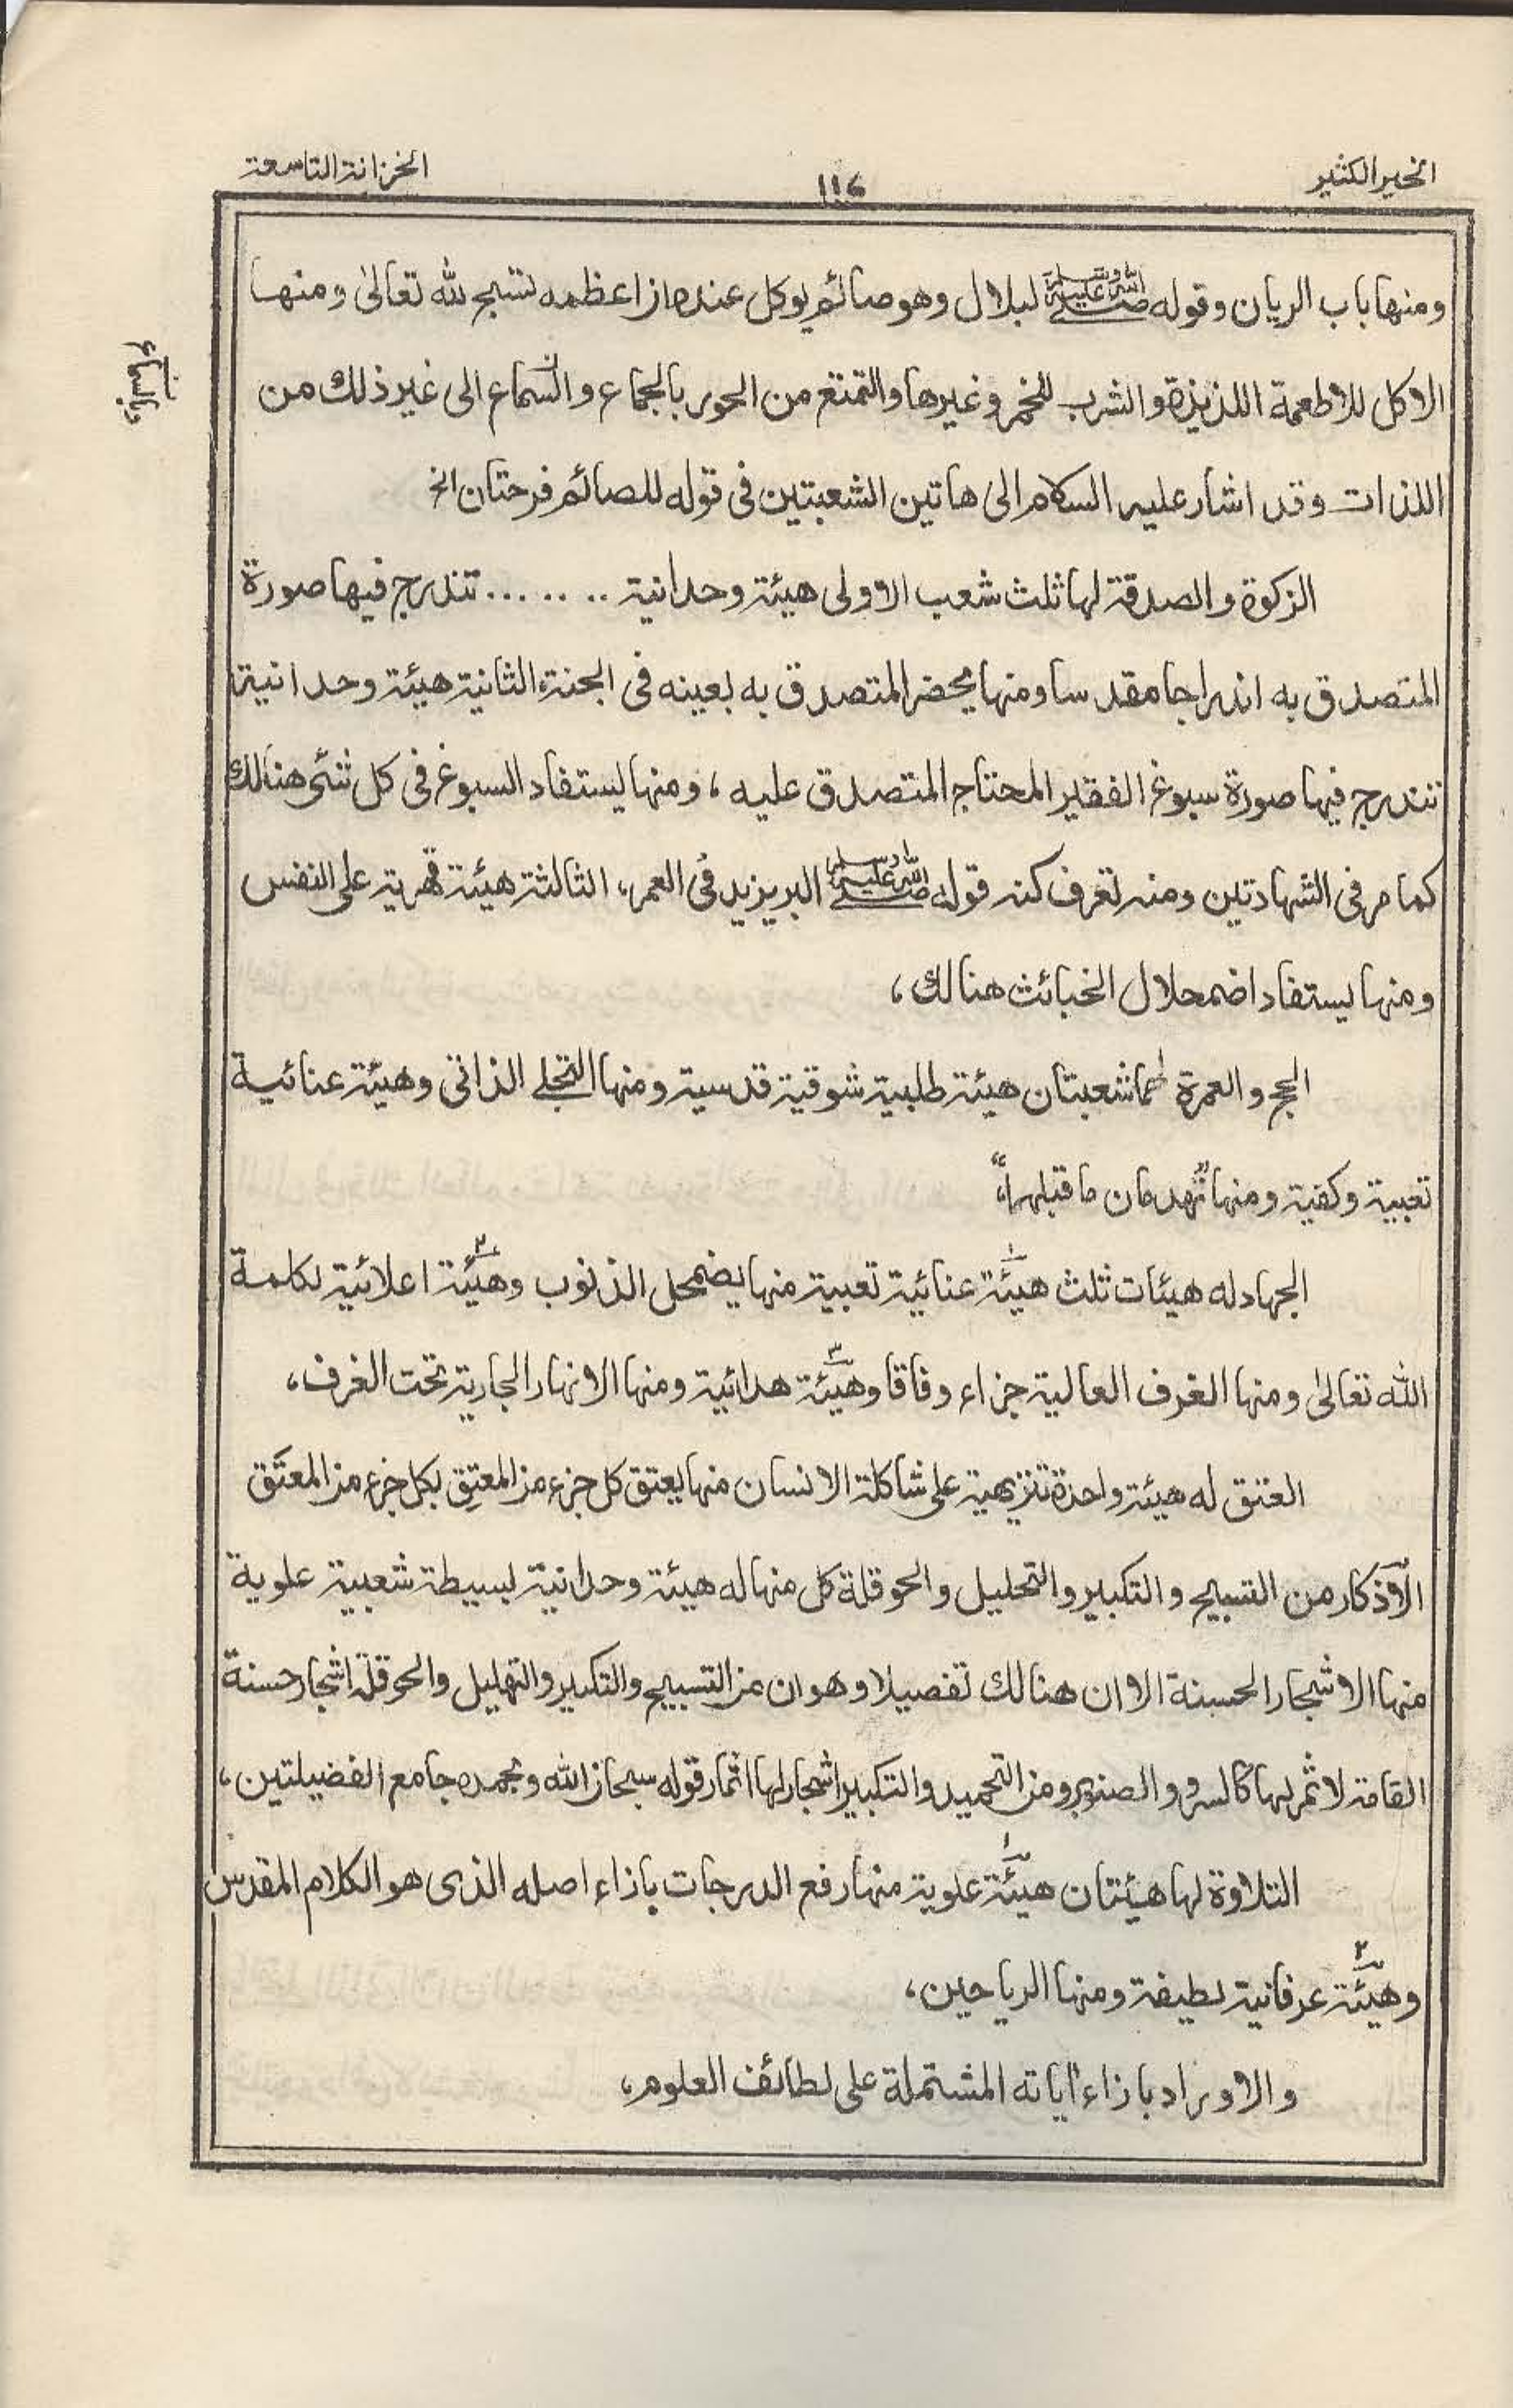 الخير الكثير
١١٤
الخزانة التاسعة
ومنها باب الريان وقوله صلى الله عليه وسلم لبلال وهو صائم يوكل عنده ان اعظمه تسبح لله تعالىٰ ومنها
الاكل للاطعمة اللذيذة والشرب للخمر وغيرها والتمتع من الحور بالجماع والسماع الى غير ذلك من
اللذات وقد اشار عليه السلام الى هاتين الشعبتين فى قوله للصائم فرحتان الخ
الزكوة والصدقة لها ثلث شعب الاولى هيئة وحدانية ........ تندرج فيها صورة
المتصدق به اندراجا مقدسا ومنها يحضر المتصدق به بعينه فى الجنة الثانية هيئة وحدانية
تندرج فيها صورة سبوغ الفقير المحتاج المتصدق عليه، ومنها يستفاد السبوغ فى كل شئى هنالك
كما مر فى الشهادتين ومنه تعرف كنه قوله صلى الله عليه وسلم البر يزيد فى العمر، الثالثة هيئة قهرية على النفس
ومنها يستفاد اضمحلال الخبائث هنالك،
الحج والعمرة لهما شعبتان هيئة طلبية شوقية قدسية ومنها التجلے الذاتى وهيئة عنائية
تعبية وكفية ومنها "تهدمان ما قبلهما"،
الجهاد له هيئات ثلث هيئة١ عنائية تعبية منها يضمحل الذنوب وهيئة٢ اعلائية لكلمة
الله تعالىٰ ومنها الغرف العالية جزاء وفاقا وهيئة٣ هدائية ومنها الانهار الجارية تحت الغرف،
العتق له هيئة واحدة تنزيهية على شاكلة الانسان منها يعتق كل جزء من المعتِق بكل جزء من المعتَق
الاذكار من التسبيح والتكبير والتحليل والحوقلة كل منها له هيئة وحدانية بسيطة شعبية علوية
منها الاشجار الحسنة الا ان هنالك تفصيلا وهو ان من التسبيح والتكبير والتهليل والحوقلة اشجار حسنة
القامة لا ثمر لها كالسرو والصنوبر ومن التحميد والتكبير اشجار لها اثمار قوله سبحان الله وبحمده جامع الفضيلتين،
التلاوة لها هيئتان هيئة١ علوية منها رفع الدرجات بازاء اصله الذى هو الكلام المقدس
وهيئة٢ عرفانية لطيفة ومنها الرياحين،
والاوراد بازاء اٰياته المشتملة على لطائف العلوم،